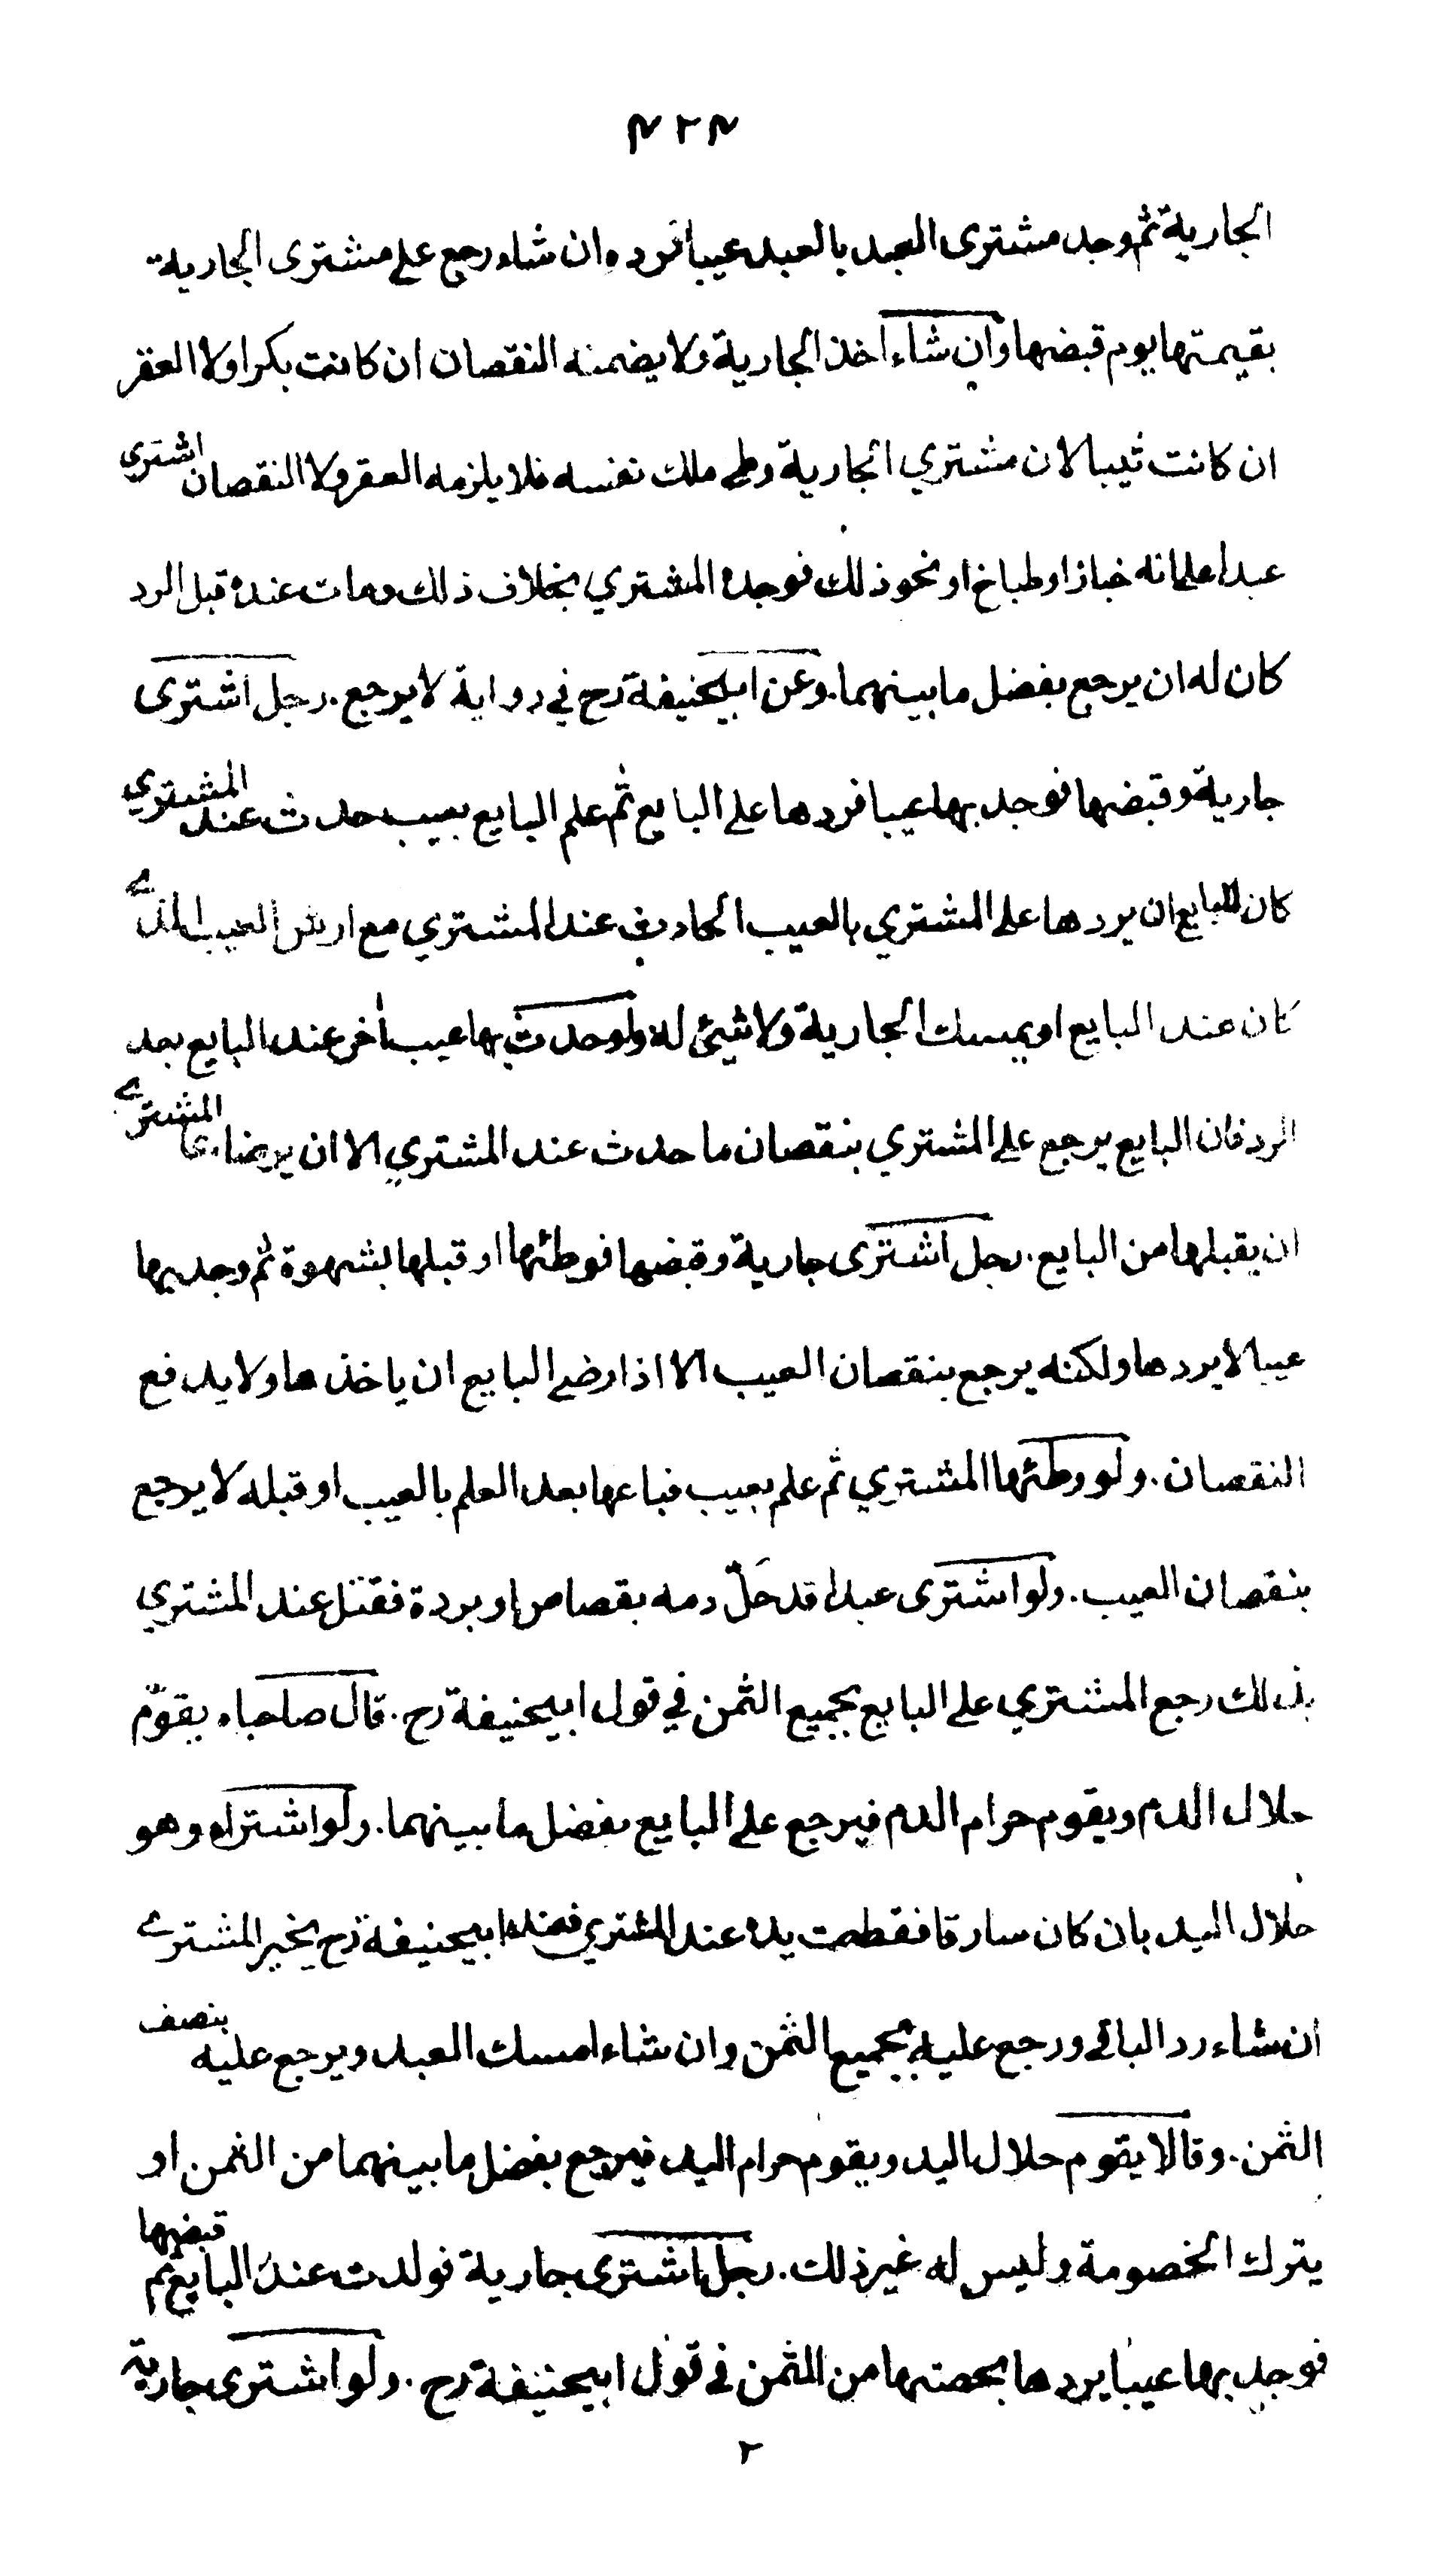 ۴۲۴
الجارية ثم وجد مشترى العبد بالعبد عيبا فرده ان شاء رجع على مشترى الجارية
بقيمتها يوم قبضها وان شاء اخذ الجارية ولا يضمنه النقصان ان كانت بكرا ولا العقر
ان كانت ثيبا لان مشتري الجارية وطى ملك نفسه فلا يلزمه العقر ولا النقصان اشترى
عبدا على انه خباز او طباخ او نحو ذلك فوجده المشتري بخلاف ذلك ومات عنده قبل الرد
كان له ان يرجع بفضل ما بينهما. وعن ابيحنيفة رح في رواية لا يرجع. رجل اشترى
جارية وقبضها فوجد بها عيبا فردها على البايع ثم علم البايع بعيب حدث عند المشتري
كان للبايع ان يردها على المشتري بالعيب الحادث عند المشتري مع ارش العيب الذي
كان عند البايع او يمسك الجارية ولا شيئ له ولو حدث بها عيب اخر عند البايع بعد
الرد فان البايع يرجع على المشتري بنقصان ما حدث عند المشتري الا ان يرضا المشترى
ان يقبلها من البايع. رجل اشترى جارية وقبضها فوطئها او قبلها بشهوة ثم وجد بها
عيبا لا يردها ولكنه يرجع بنقصان العيب الا اذا رضى البايع ان ياخذها ولا يدفع
النقصان. ولو وطئها المشتري ثم علم بعيب فباعها بعد العلم بالعيب او قبله لا يرجع
بنقصان العيب. ولو اشترى عبدا قد حَلّ دمه بقصاص او بردة فقتل عند المشتري
بذلك رجع المشتري على البايع بجميع الثمن في قول ابيحنيفة رح. قال صاحباه يقوّم
حلال الدم ويقوم حرام الدم فيرجع على البايع بفضل ما بينهما. ولو اشتراه وهو
حلال اليد بان كان سارقا فقطعت يده عند المشتري فعند ابيحنيفة رح يخير المشترى
ان شاء رد الباقى ورجع عليه بجميع الثمن وان شاء امسك العبد ويرجع عليه بنصف
الثمن. وقالا يقوم حلال اليد ويقوم حرام اليد فيرجع بفضل ما بينهما من الثمن او
يترك الخصومة وليس له غير ذلك. رجل اشترى جارية فولدت عند البايع ثم قبضها
فوجد بها عيبا يردها بحصتها من الثمن في قول ابيحنيفة رح. ولو اشترى جارية
۲